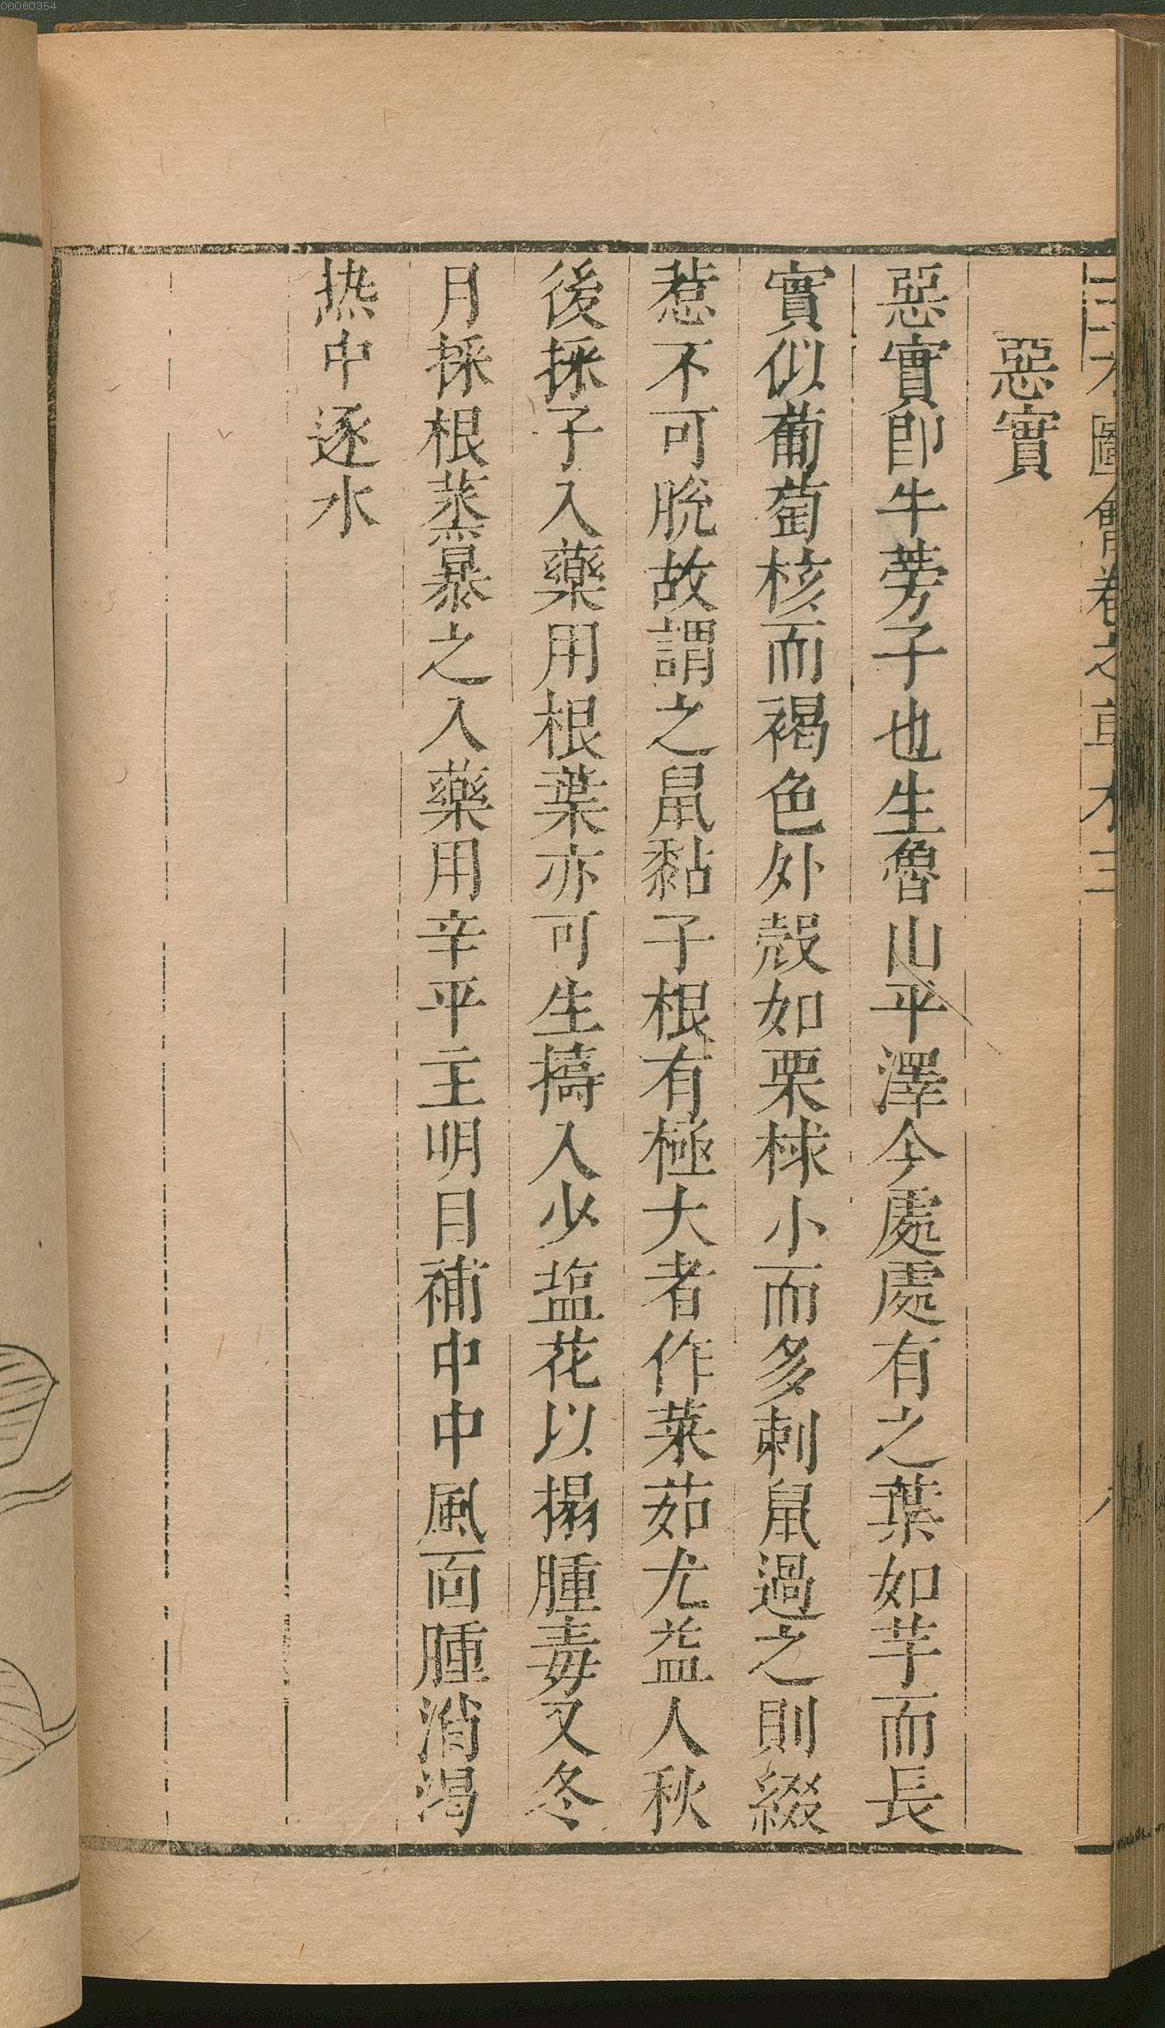 圖會卷之草木三
惡實
惡實即牛蒡子也生魯山平澤今處處有之葉如芋而長
實似葡萄核而褐色外殼如栗梂小而多刺鼠過之則綴
惹不可脫故謂之鼠黏子根有極大者作菜茹尤益人秋
後採子入藥用根葉亦可生擣入少塩花以搨腫毒又冬
月採根蒸暴之入藥用辛平主明目補中中風面腫消渴
热中逐水
00060354